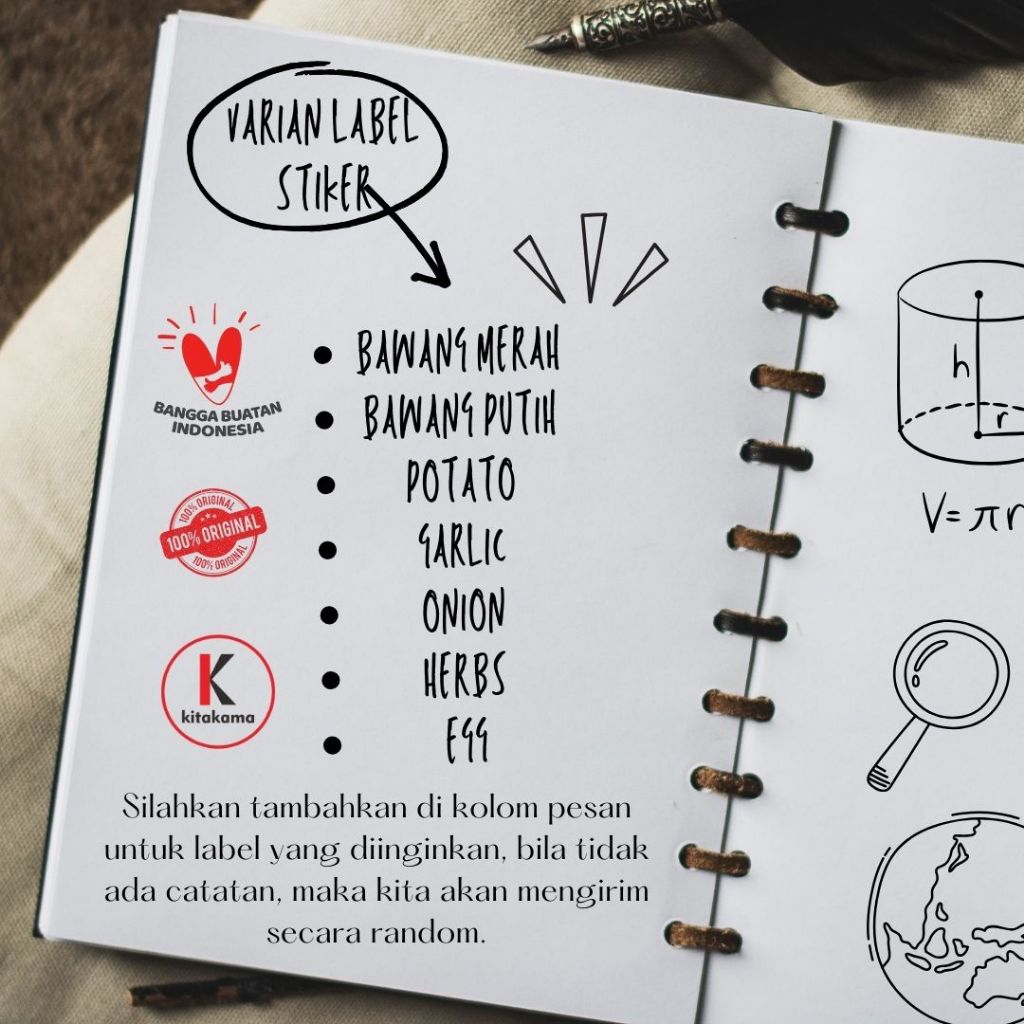 VARIAN LABEL
STIKER
BANGGA BUATAN
INDONESIA
100% ORIGINAL
100% ORIGINAL
100% ORIGINAL
K
kitakama
• BAWANG MERAH
• BAWANG PUTIH
• POTATO
• GARLIC
• ONION
• HERBS
• EGG
Silahkan tambahkan di kolom pesan
untuk label yang diinginkan, bila tidak
ada catatan, maka kita akan mengirim
secara random.
h
r
V=πr